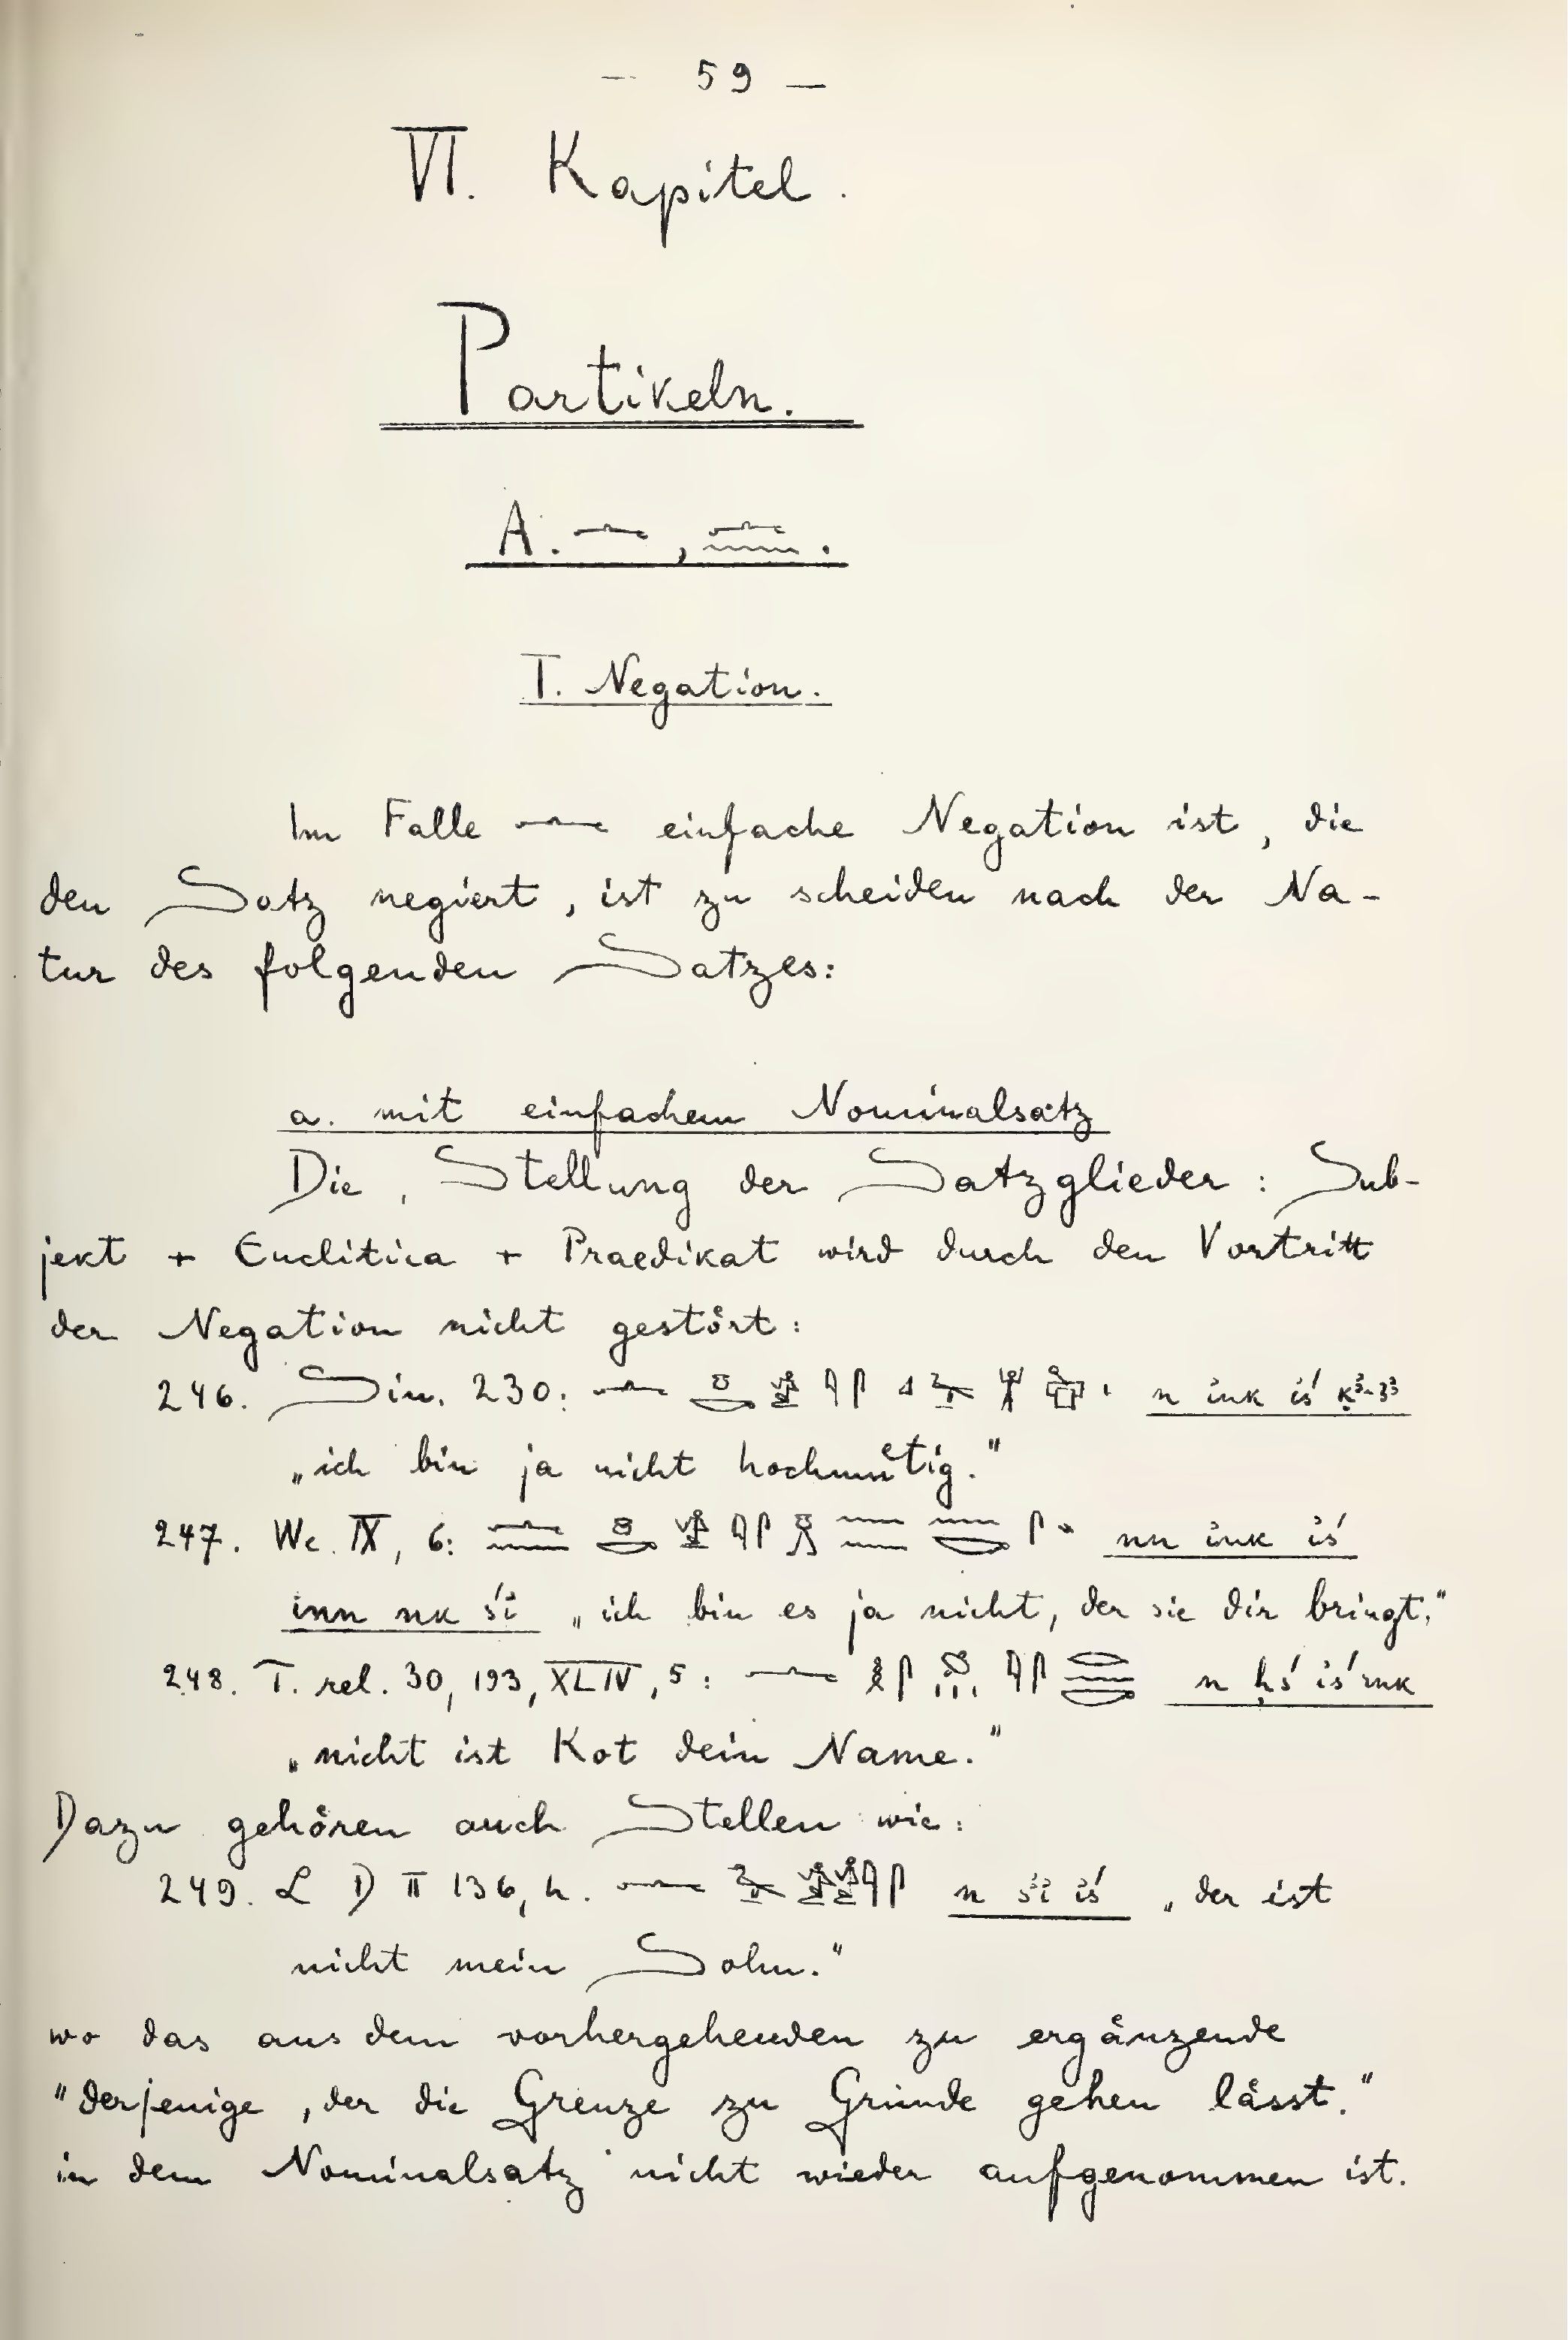 — 59 —
VI. Kapitel.
Partikeln.
A. 𓂜, 𓂜𓈖.
I. Negation.
Im Falle 𓂜 einfache Negation ist, die
den Satz negiert, ist zu scheiden nach der Na-
tur des folgenden Satzes:
a. mit einfachem Nominalsatz
Die Stellung der Satzglieder: Sub-
jekt + Enclitica + Praedikat wird durch den Vortritt
der Negation nicht gestört:
246. Sin. 230: 𓂜 𓏌𓎡 𓀀 𓇋𓋴 n ink iś
„ich bin ja nicht hochmuetig."
247. We. IX, 6: 𓂜𓈖 𓏌𓎡 𓀀 𓇋𓋴 𓏎 𓈖𓈖 𓈖𓎡 𓋴𓏭 nn ink iś
inn nk śi „ich bin es ja nicht, der sie dir bringt."
248. T. rel. 30, 193, XLIV, 5: 𓂜 𓎛𓋴 𓇋𓋴 𓂋𓈖𓎡 n ḥś iś rnk
„nicht ist Kot dein Name."
Dazu gehören auch Stellen wie:
249. L D II 136, h. 𓂜 𓅭 𓀀𓀀 𓇋𓋴 n sꜣi iś „der ist
nicht mein Sohn."
wo das aus dem vorhergehenden zu ergänzende
"derjenige, der die Grenze zu Grunde gehen lässt."
in dem Nominalsatz nicht wieder aufgenommen ist.